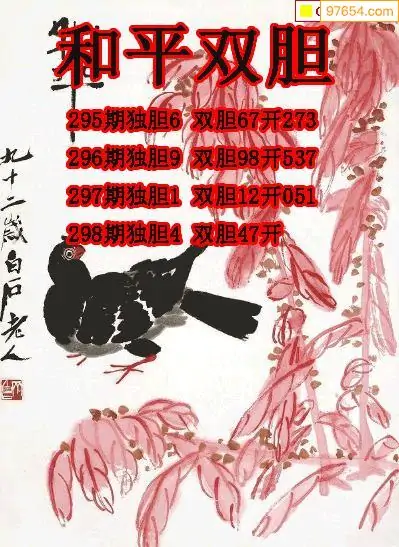 97654.com
和平双胆
295期独胆6 双胆67开273
296期独胆9 双胆98开537
297期独胆1 双胆12开051
298期独胆4 双胆47开
九十二岁白石老人